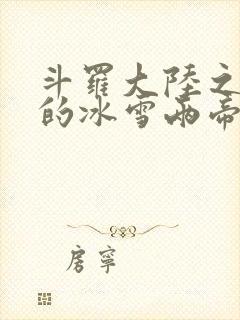 斗羅大陸之
的冰雪兩帝
房寧